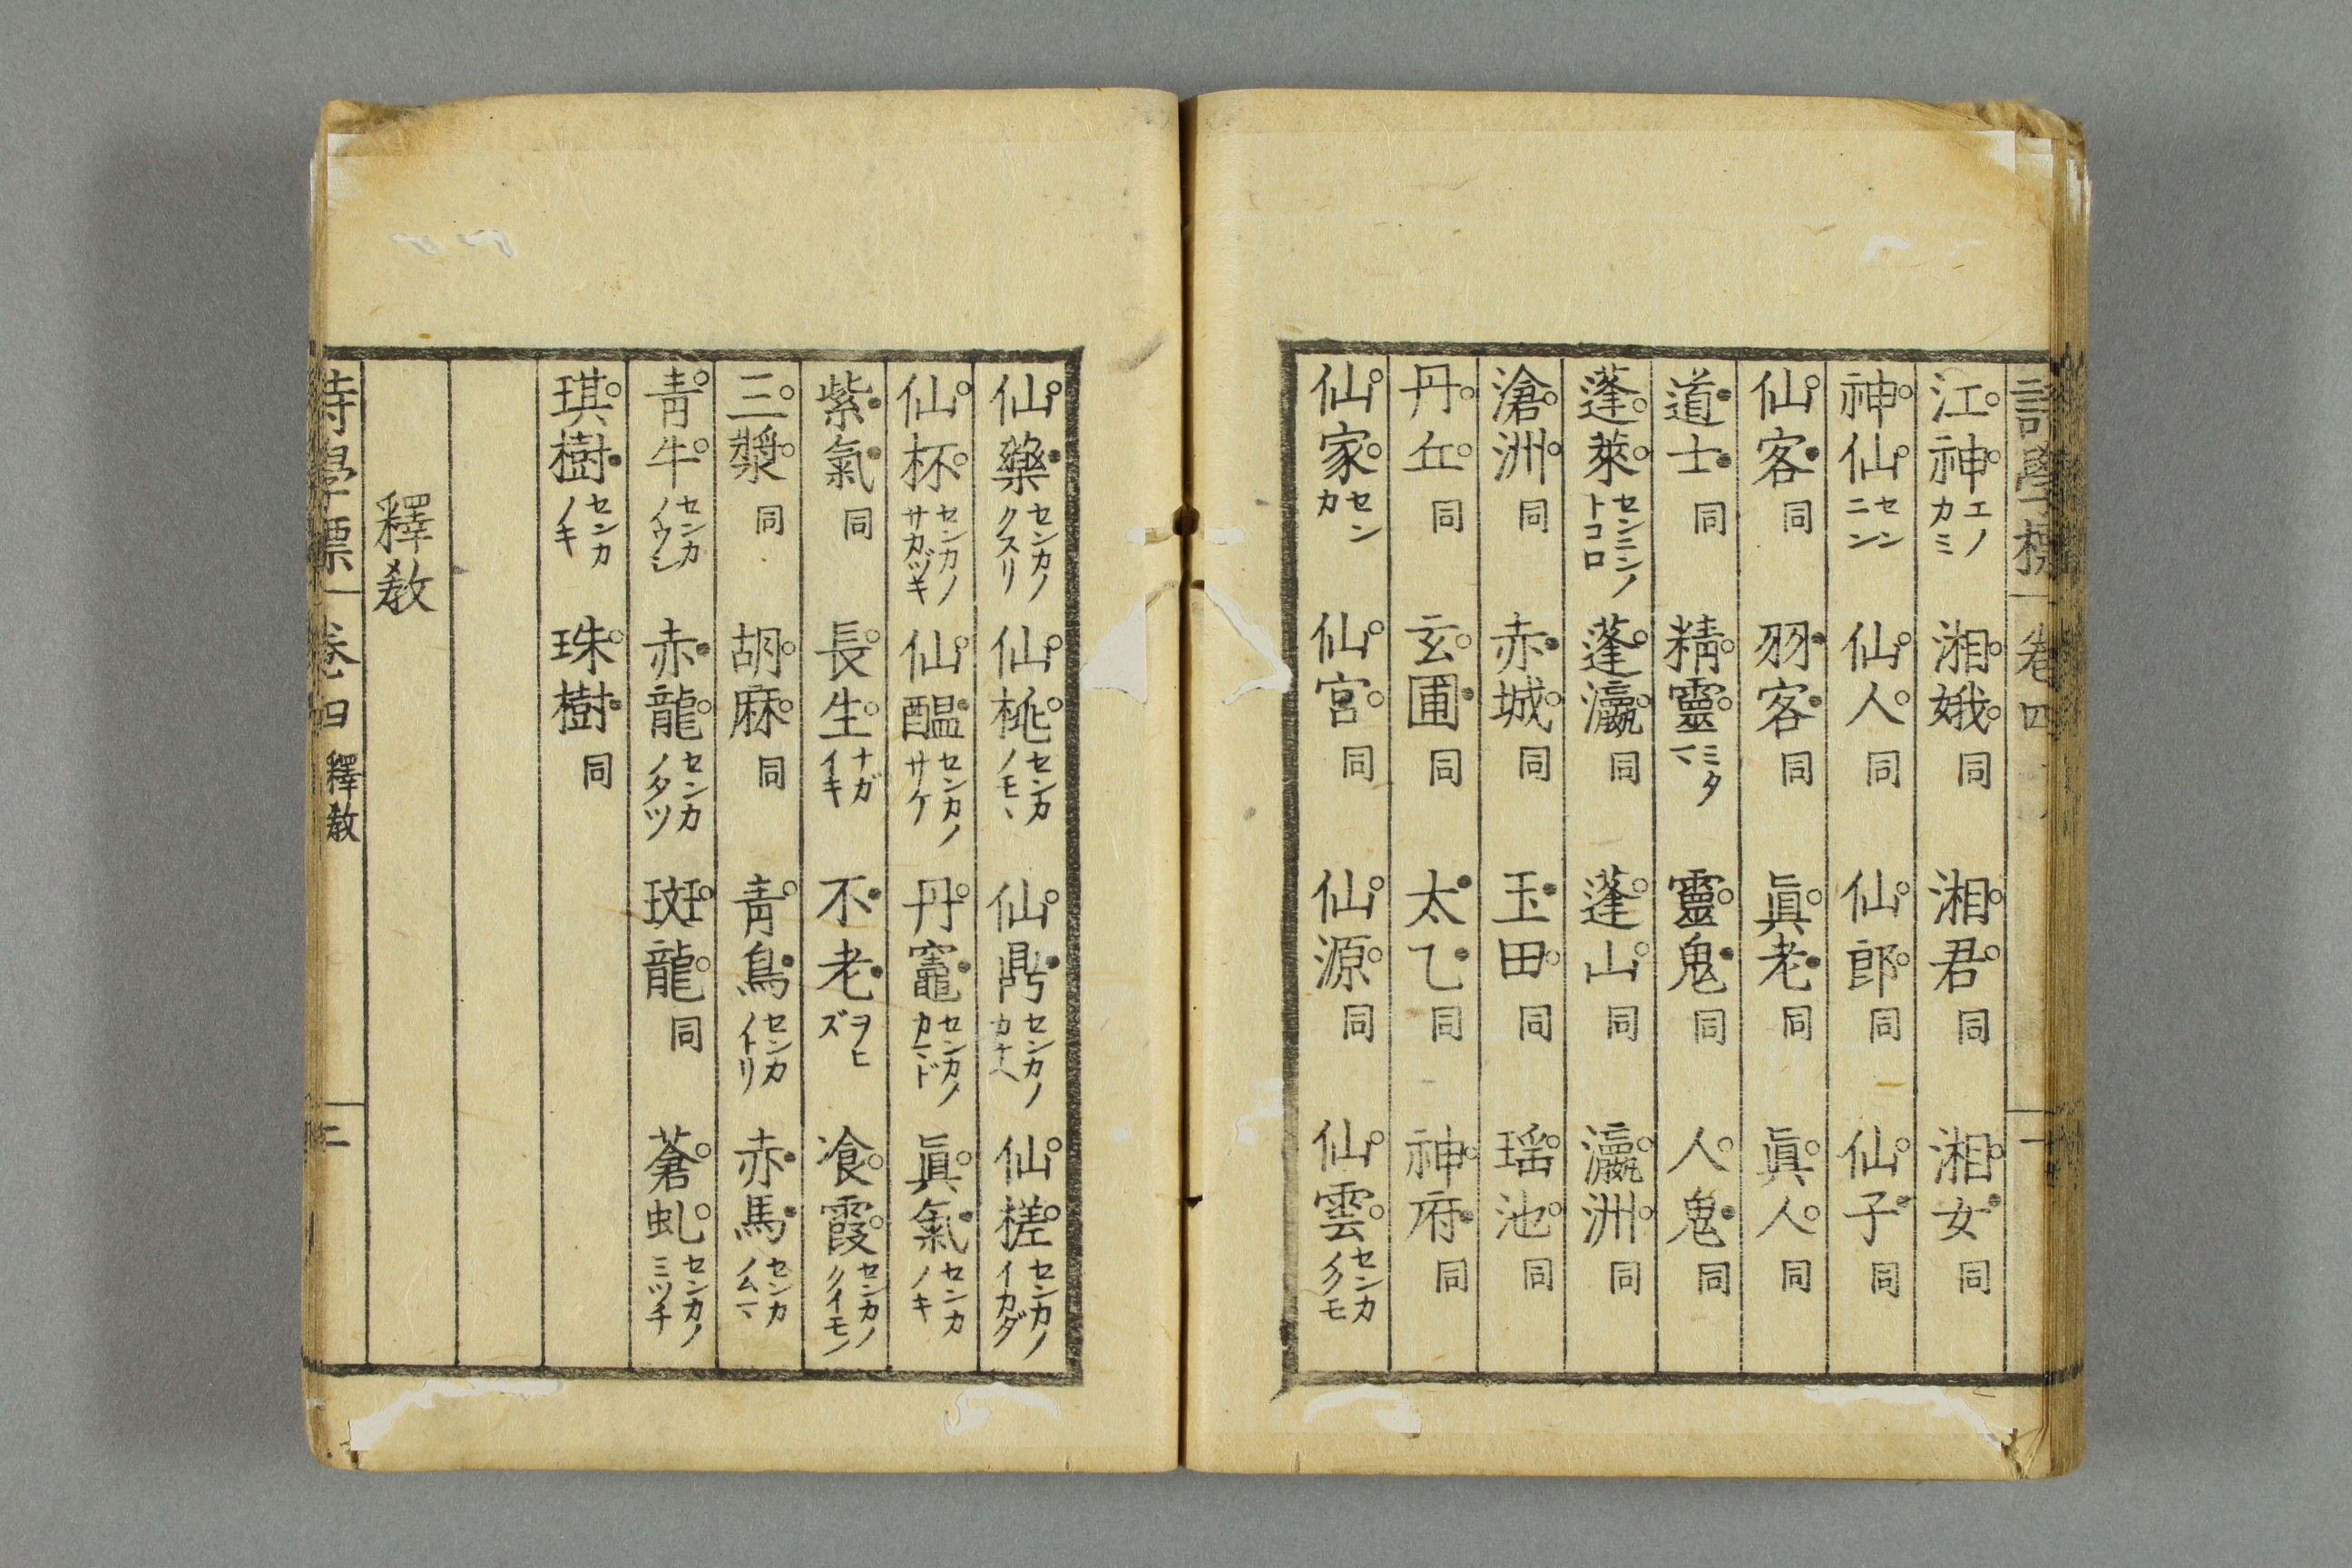 詩學標 卷四 一
江神エノカミ 湘娥同 湘君同 湘女同
神仙センニン 仙人同 仙郎同 仙子同
仙客同 羽客同 眞老同 眞人同
道士同 精靈ミタマ 靈鬼同 人鬼同
蓬萊センニンノトコロ 蓬瀛同 蓬山同 瀛洲同
滄洲同 赤城同 玉田同 瑶池同
丹丘同 玄圃同 太乙同 神府同
仙家センカ 仙宮同 仙源同 仙雲センカノクモ
仙藥センカノクスリ 仙桃センカノモヽ 仙鼎センカノカナヘ 仙槎センカノイカダ
仙杯センカノサカヅキ 仙醖センカノサケ 丹竈センカノカマド 眞氣センカノキ
紫氣同 長生ナガイキ 不老ヲヒズ 飡霞センカノクイモノ
三漿同 胡麻同 青鳥センカノトリ 赤馬センカノムマ
青牛センカノウシ 赤龍センカノタツ 斑龍同 蒼虬センカノミツチ
琪樹センカノキ 珠樹同
釋敎
詩學標 卷四 釋敎 二